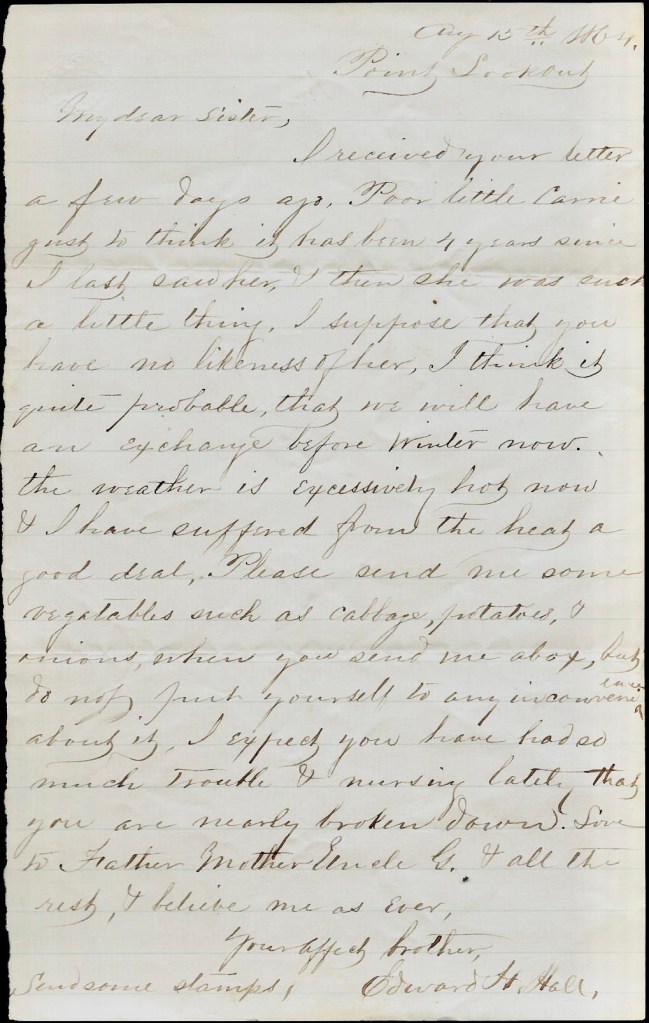 Aug 15th 1864.
Point Lookout
My dear Sister,
I received your letter
a few days ago. Poor little Carrie
just to think it has been 4 years since
I last saw her, & then she was such
a little thing. I suppose that you
have no likeness of her, I think it
quite probable, that we will have
an exchange before Winter now.
the weather is excessively hot now
& I have suffered from the heat a
good deal, Please send me some
vegatables such as cabbage, potatoes, &
onions, when you send me a box, but
do not put yourself to any inconvenience
about it, I expect you have had so
much trouble & nursing lately that
you are nearly broken down. Love
to Father Mother Uncle G. & all the
rest, & believe me as ever,
Your affect brother,
Send some stamps, Edward H. Hall,